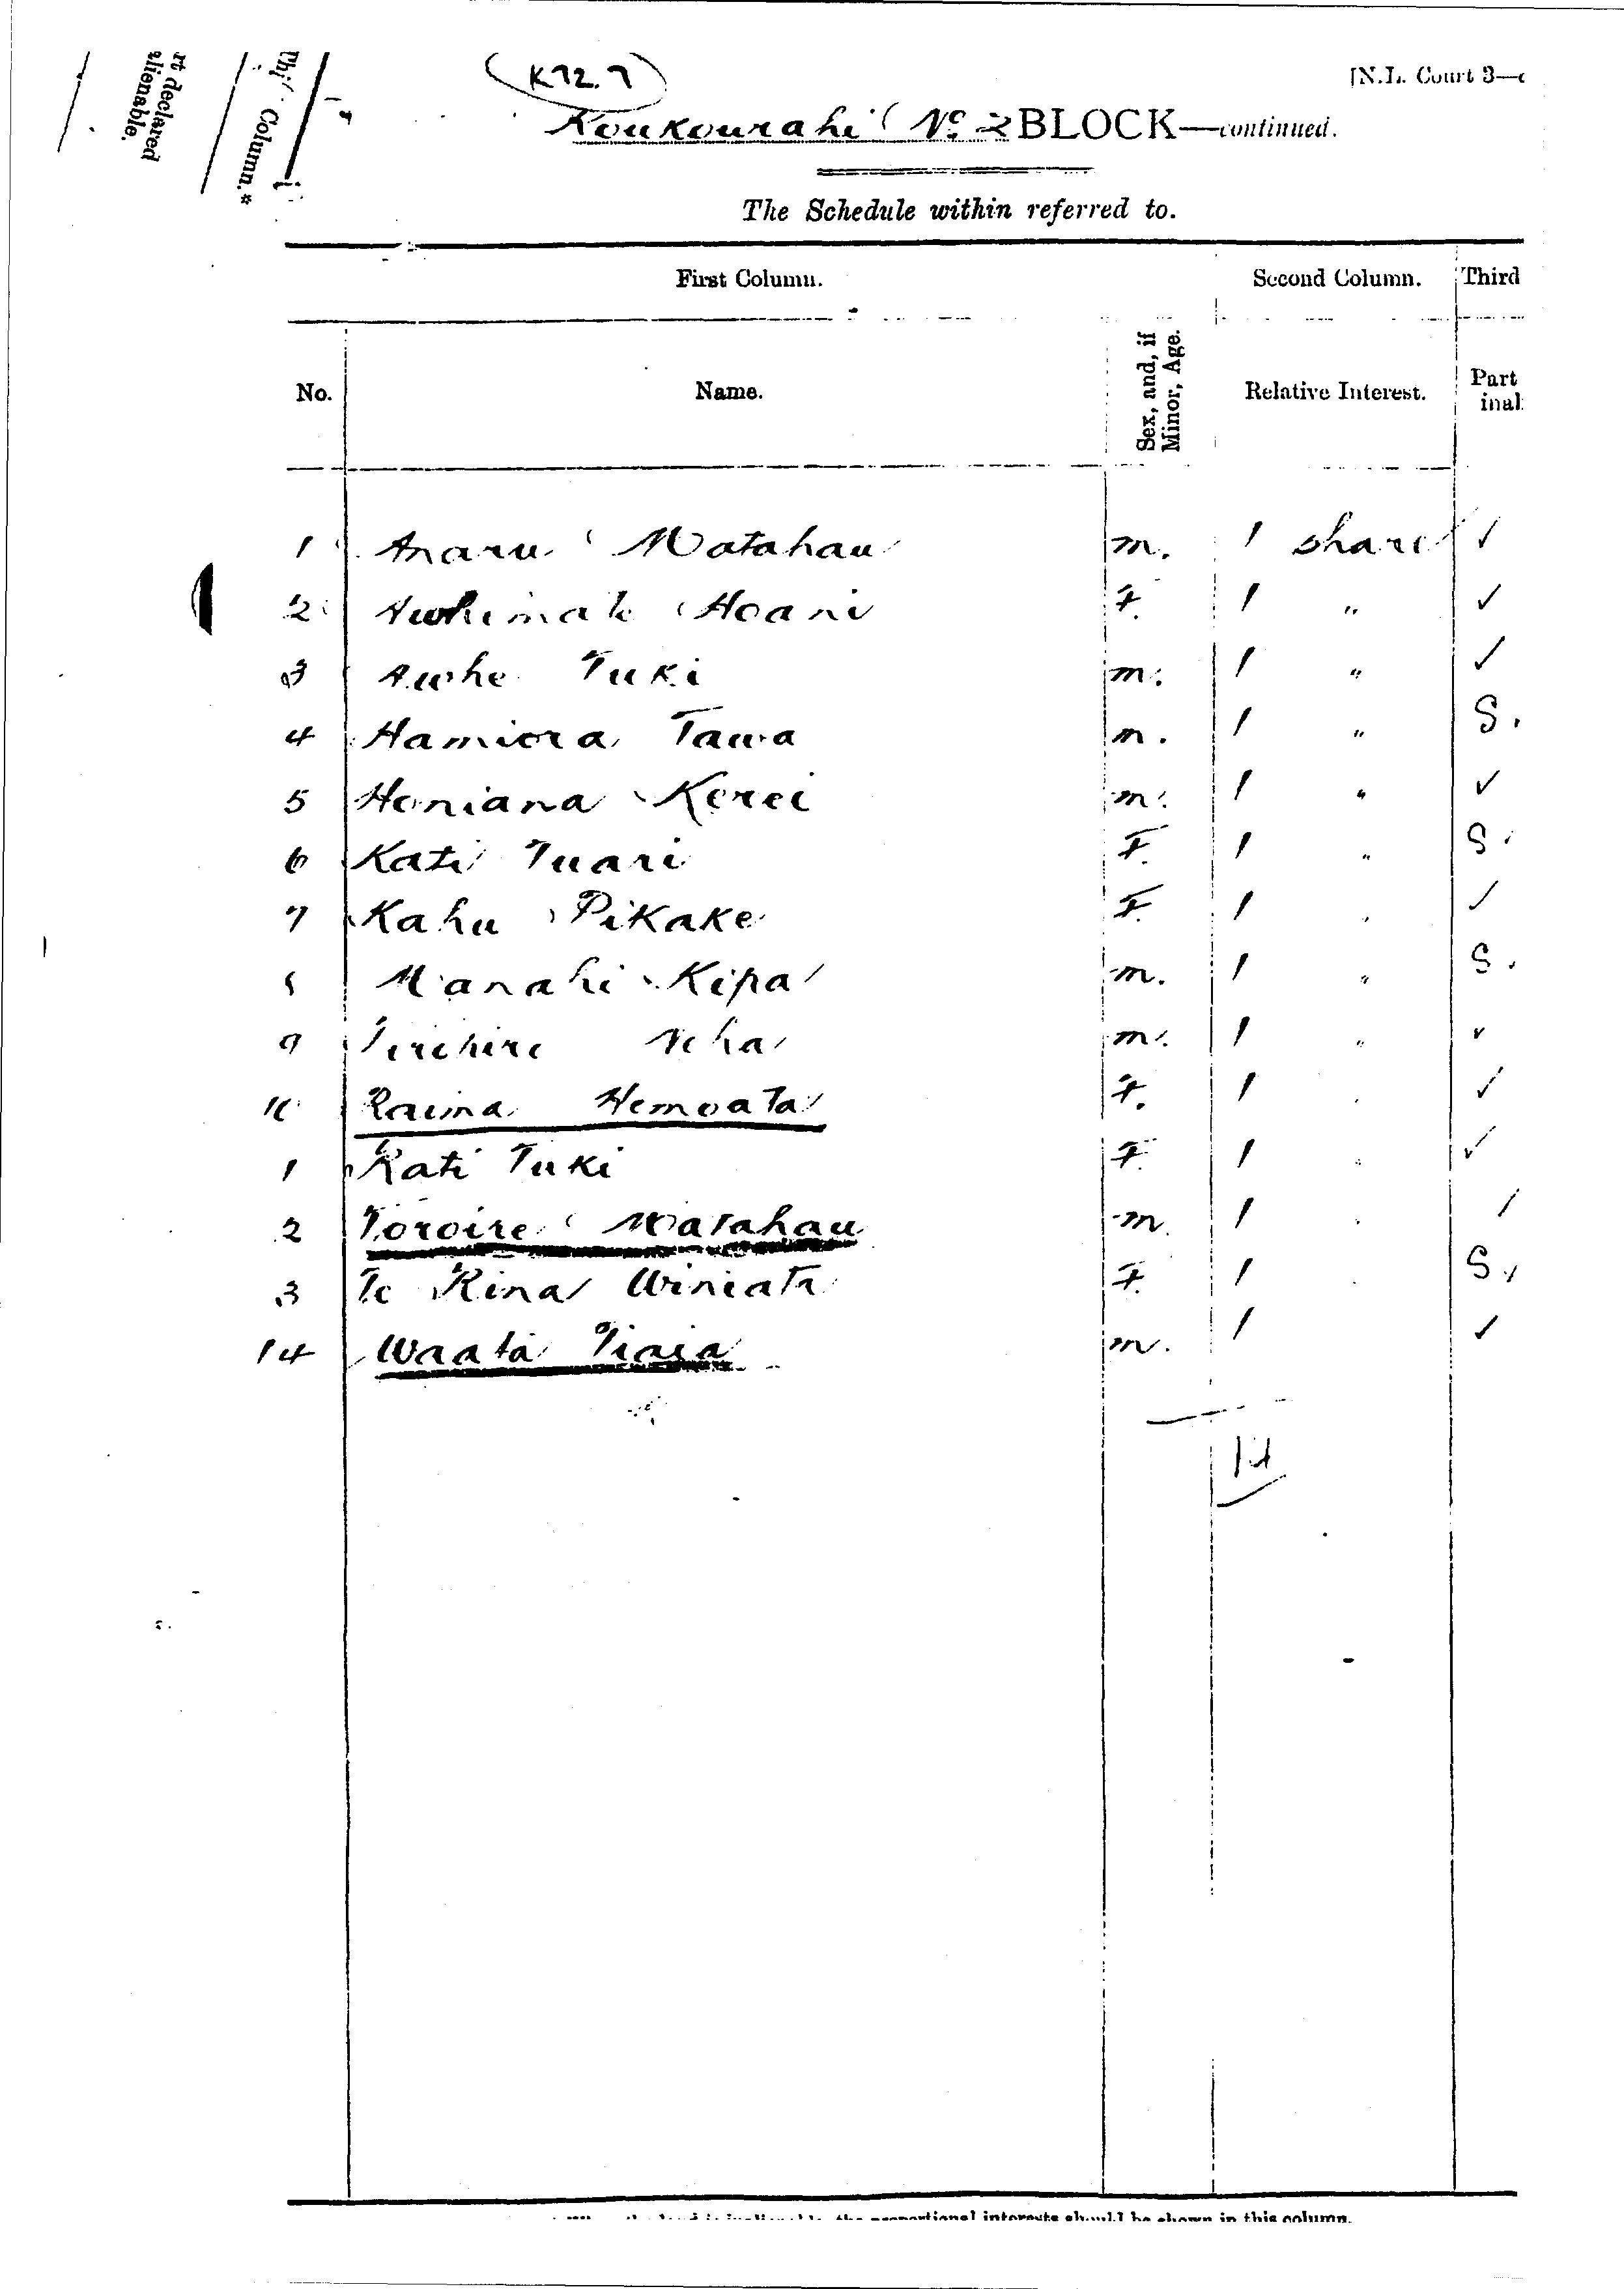 K72.7
[N.L. Court 3—
Koukourahi No 2 BLOCK—continued.
rt declared
alienable.
Column.*
The Schedule within referred to.
First Column. Second Column. Third
No. Name. Sex, and, if Minor, Age. Relative Interest. Part inal
1 Anaru Matahau m. 1 share ✓
2 Awhimate Hoani F. 1 " ✓
3 Awhe Tuki m. 1 " ✓
4 Hamiora Tawa m. 1 " S.
5 Honiana Kerei m. 1 " ✓
6 Kati Tuari F. 1 " S.
7 Kahu Pikake F. 1 " ✓
8 Manahi Kipa m. 1 " S.
9 m. 1 " ✓
10 Raima Hemoata F. 1 " ✓
1 Rati Tuki F. 1 " ✓
2 Toroire Matahau m. 1 " ✓
3 Te Rina Winiata F. 1 " S.
14 Waata m. 1 ✓
14
the proportional interests should be shown in this column.